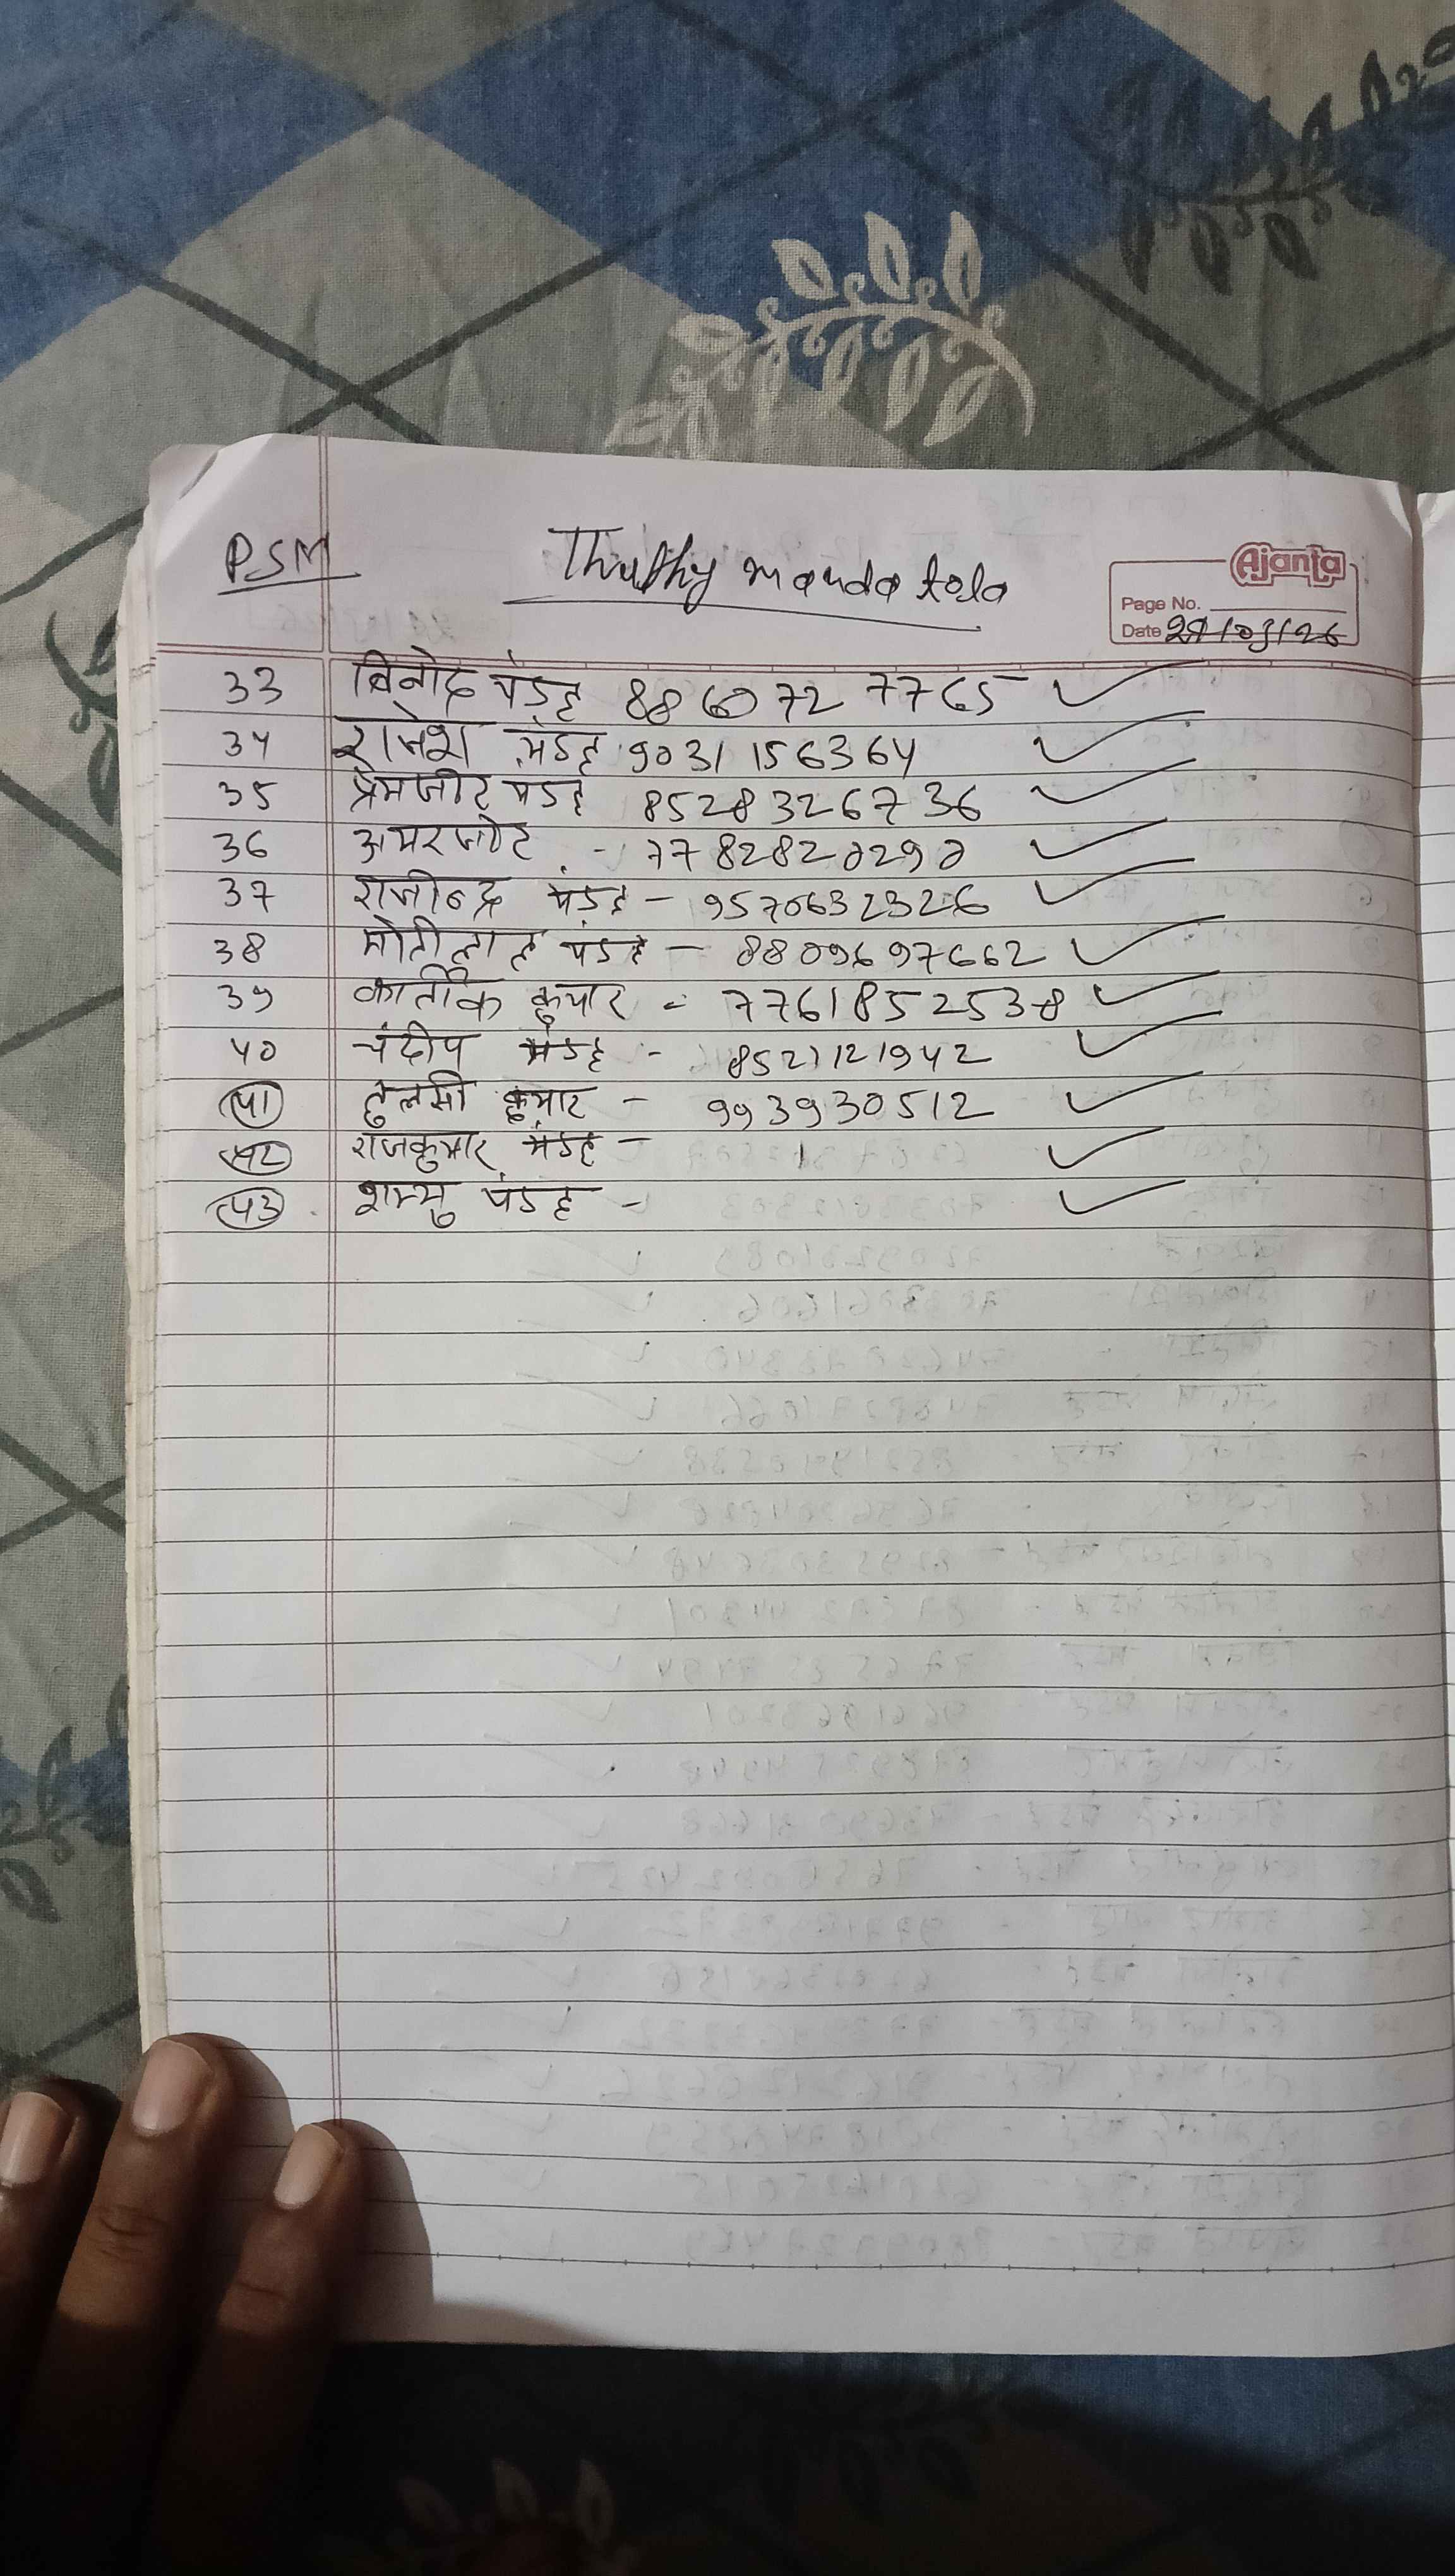 PSM
Thuthy manda tola
Ajanta
Page No.
Date 29/03/26
33 विनोद मंडल 8860727765 ✓
34 राजेश मंडल 9031156364 ✓
35 प्रेमजीत मंडल 8528326736 ✓
36 अमरजीत - 7782820290 ✓
37 राजीन्द्र मंडल - 9570632326 ✓
38 मोतीलाल मंडल - 8809697662 ✓
39 कार्तीक कुमार - 7761852538 ✓
40 चंदीप मंडल - 8521121942 ✓
41 तुलसी कुमार - 993930512 ✓
42 राजकुमार मंडल - ✓
43 शम्भु मंडल - ✓